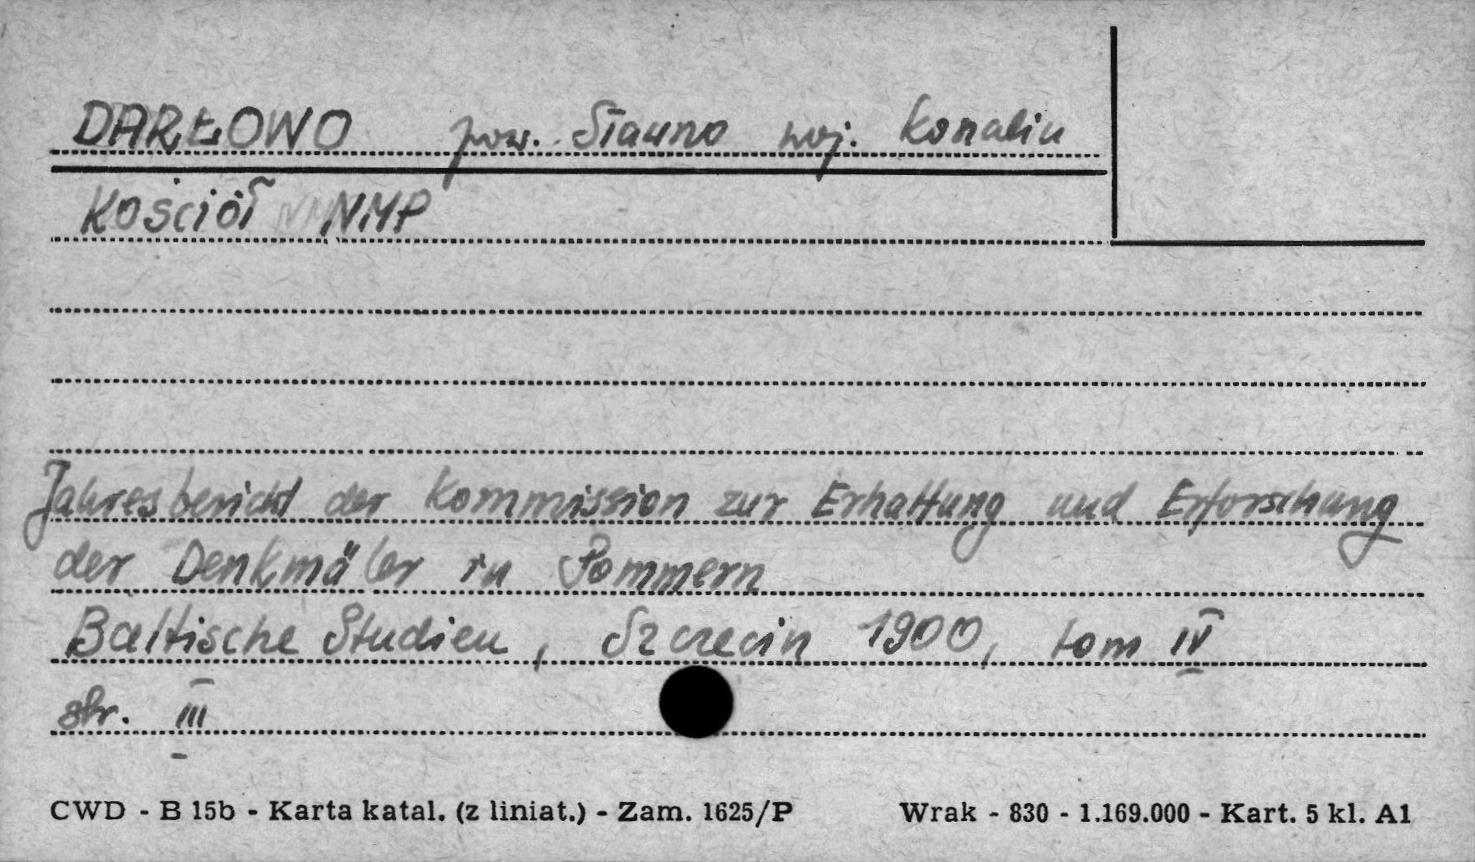 DARŁOWO pow. Sławno woj. Koszalin
Kościół NMP
Jahresbericht der Kommission zur Erhaltung und Erforschung
der Denkmäler in Pommern
Baltische Studien, Szczecin 1900, tom IV
str. III
CWD - B 15b - Karta katal. (z liniat.) - Zam. 1625/P Wrak - 830 - 1.169.000 - Kart. 5 kl. A1